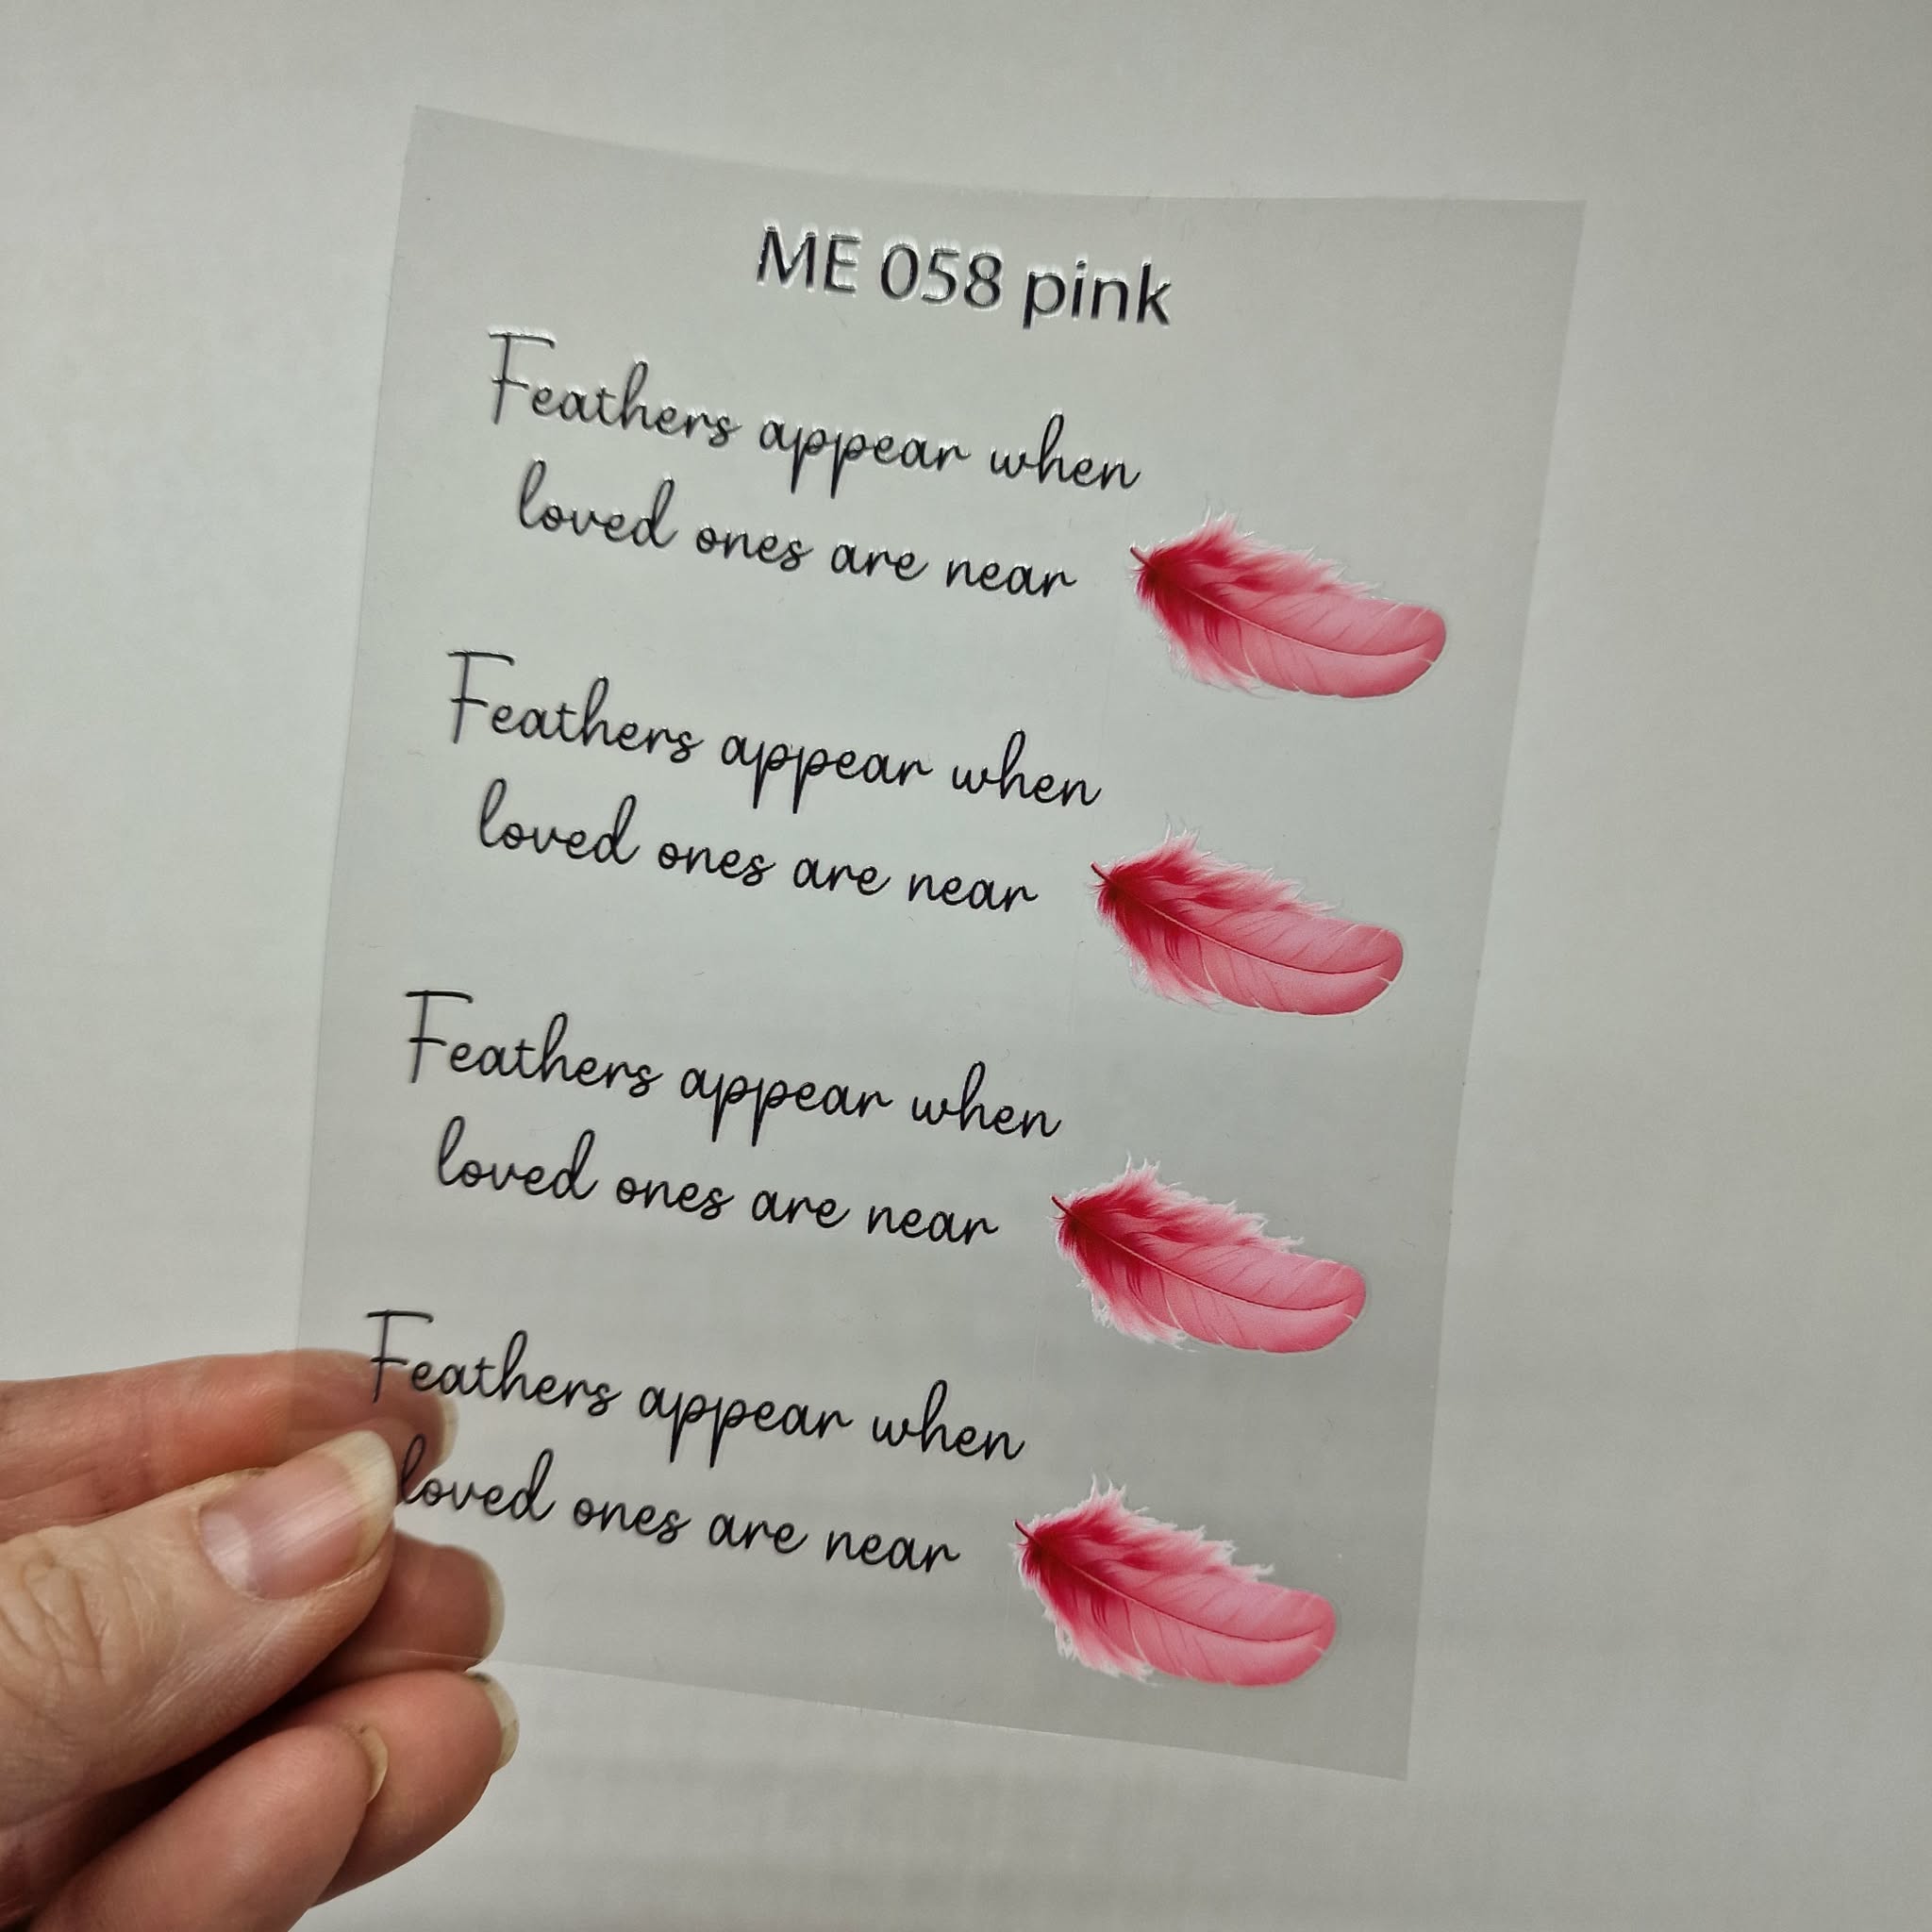 ME 058 pink
Feathers appear when
loved ones are near
Feathers appear when
loved ones are near
Feathers appear when
loved ones are near
Feathers appear when
loved ones are near